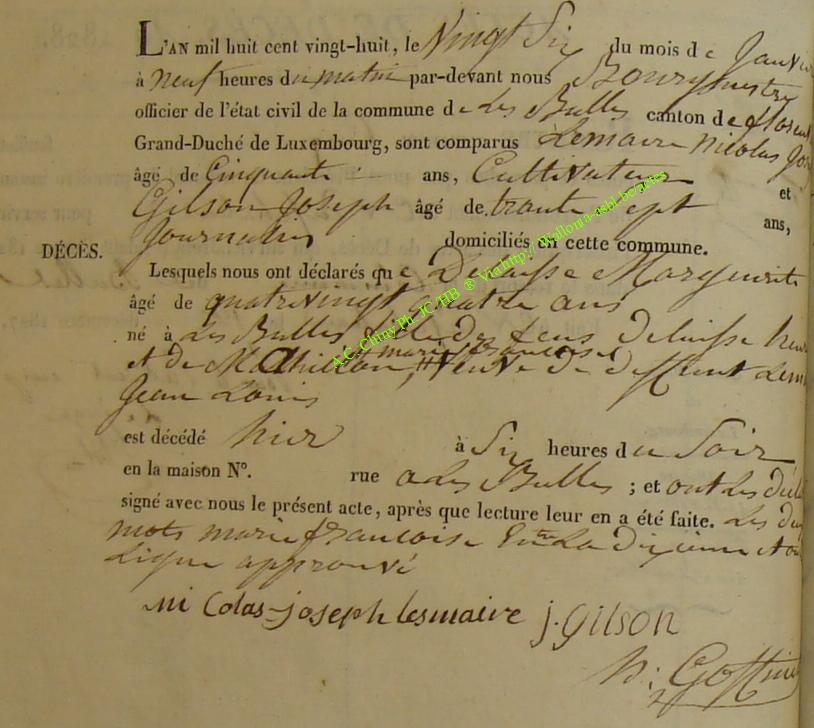 L'AN mil huit cent vingt-huit, le Vingt Six du mois de Janvier
à neuf heures du matin par-devant nous Bourgmestre
officier de l'état civil de la commune de Les Bulles canton de floren
Grand-Duché de Luxembourg, sont comparus Lemaire Nicolas Jos
âgé de Cinquante ans, Cultivateur et
Gilson Joseph âgé de trente sept ans,
Journalier domiciliés en cette commune.
DÉCÈS.
Lesquels nous ont déclarés que Delaisse Marguerite
âgé de quatrevingt quatre ans
né à Les Bulles fille des feus Delaisse henri
marie francoise
et de Mathilton, Veuve de deffunt Lem
Jean Louis
est décédé hier à Six heures du Soir
en la maison N°. rue a Les Bulles ; et ont Les décl
signé avec nous le présent acte, après que lecture leur en a été faite. Les deux
mots marie francoise Sur La dixieme et on
Ligne approuvé
ni Colas-joseph lesmaire j. Gilson
h: Goffinet
A.C. Chiny Ph. JC/HB ® Via http://Wallonia-asbl.be/actes